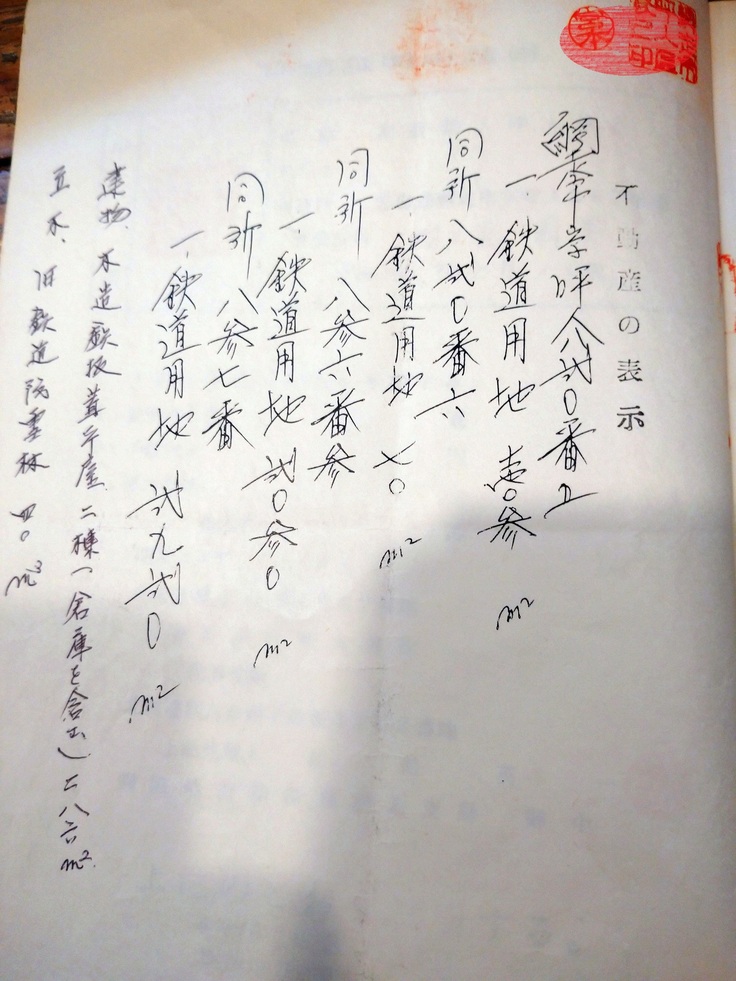 不動産の表示
網走市字呼人八弐〇番五
一、鉄道用地 壱〇参 m²
同所 八弐〇番六
一、鉄道用地 七〇 m²
同所 八参六番参
一、鉄道用地 弐〇参〇 m²
同所 八参七番
一、鉄道用地 弐九弐〇 m²
建物、木造鉄板葺平屋 二棟(倉庫を含む)二八六m²
立木、旧鉄道防雪林 四〇m³